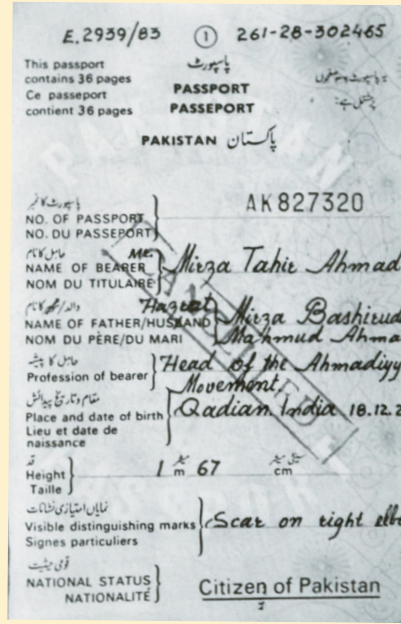 E.2939/83 1 261-28-302465
This passport
contains 36 pages
Ce passeport
contient 36 pages
پاسپورٹ
PASSPORT
PASSEPORT
PAKISTAN پاکستان
پاسپورٹ کا نمبر
NO. OF PASSPORT
NO. DU PASSEPORT
AK827320
حامل کا نام
NAME OF BEARER
NOM DU TITULAIRE
Mr. Mirza Tahir Ahmad
NAME OF FATHER/HUSBAND
NOM DU PÈRE/DU MARI
Hazrat Mirza Bashirud
Mahmud Ahma
حامل کا پیشہ
Profession of bearer
Head of the Ahmadiyy
Movement.
مقام و تاریخ پیدائش
Place and date of birth
Lieu et date de
naissance
Qadian India 18.12.2
قد
Height
Taille
1 میٹر 67 سینٹی میٹر
m cm
نمایاں امتیازی نشانات
Visible distinguishing marks
Signes particuliers
Scar on right elb
قومی حیثیت
NATIONAL STATUS
NATIONALITÉ
Citizen of Pakistan
CANCELLED